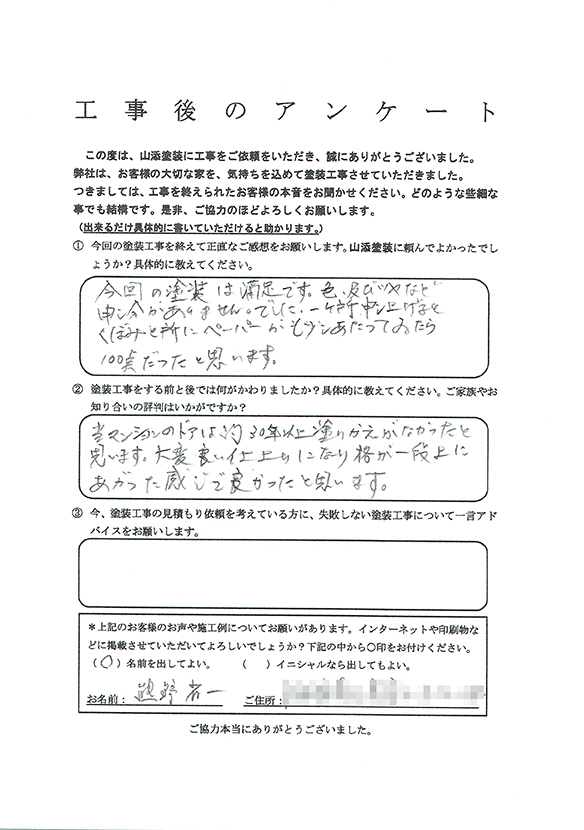 工事後のアンケート
この度は、山添塗装に工事をご依頼をいただき、誠にありがとうございました。
弊社は、お客様の大切な家を、気持ちを込めて塗装工事させていただきました。
つきましては、工事を終えられたお客様の本音をお聞かせください。どのような些細な
事でも結構です。是非、ご協力のほどよろしくお願いします。
（出来るだけ具体的に書いていただけると助かります。）
① 今回の塗装工事を終えて正直なご感想をお願いします。山添塗装に頼んでよかったでし
ょうか？具体的に教えてください。
今回の塗装は満足です。色、及びツヤなど
申し分がありません。でした。一ヶ所申し上げると
くぼみと所にペーパーがもう少しあたってゐたら
100点だったと思います。
② 塗装工事をする前と後では何がかわりましたか？具体的に教えてください。ご家族やお
知り合いの評判はいかがですか？
当マンションのドアは約30年以上塗りかえがなかったと
思います。大変良い仕上りになり格が一段上に
あがった感じで良かったと思います。
③ 今、塗装工事の見積もり依頼を考えている方に、失敗しない塗装工事について一言アド
バイスをお願いします。
＊上記のお客様のお声や施工例についてお願いがあります。インターネットや印刷物な
どに掲載させていただいてよろしいでしょうか？下記の中から〇印をお付けください。
（〇）名前を出してよい。 （ ）イニシャルなら出してもよい。
お名前： 熊野省一 ご住所：
ご協力本当にありがとうございました。